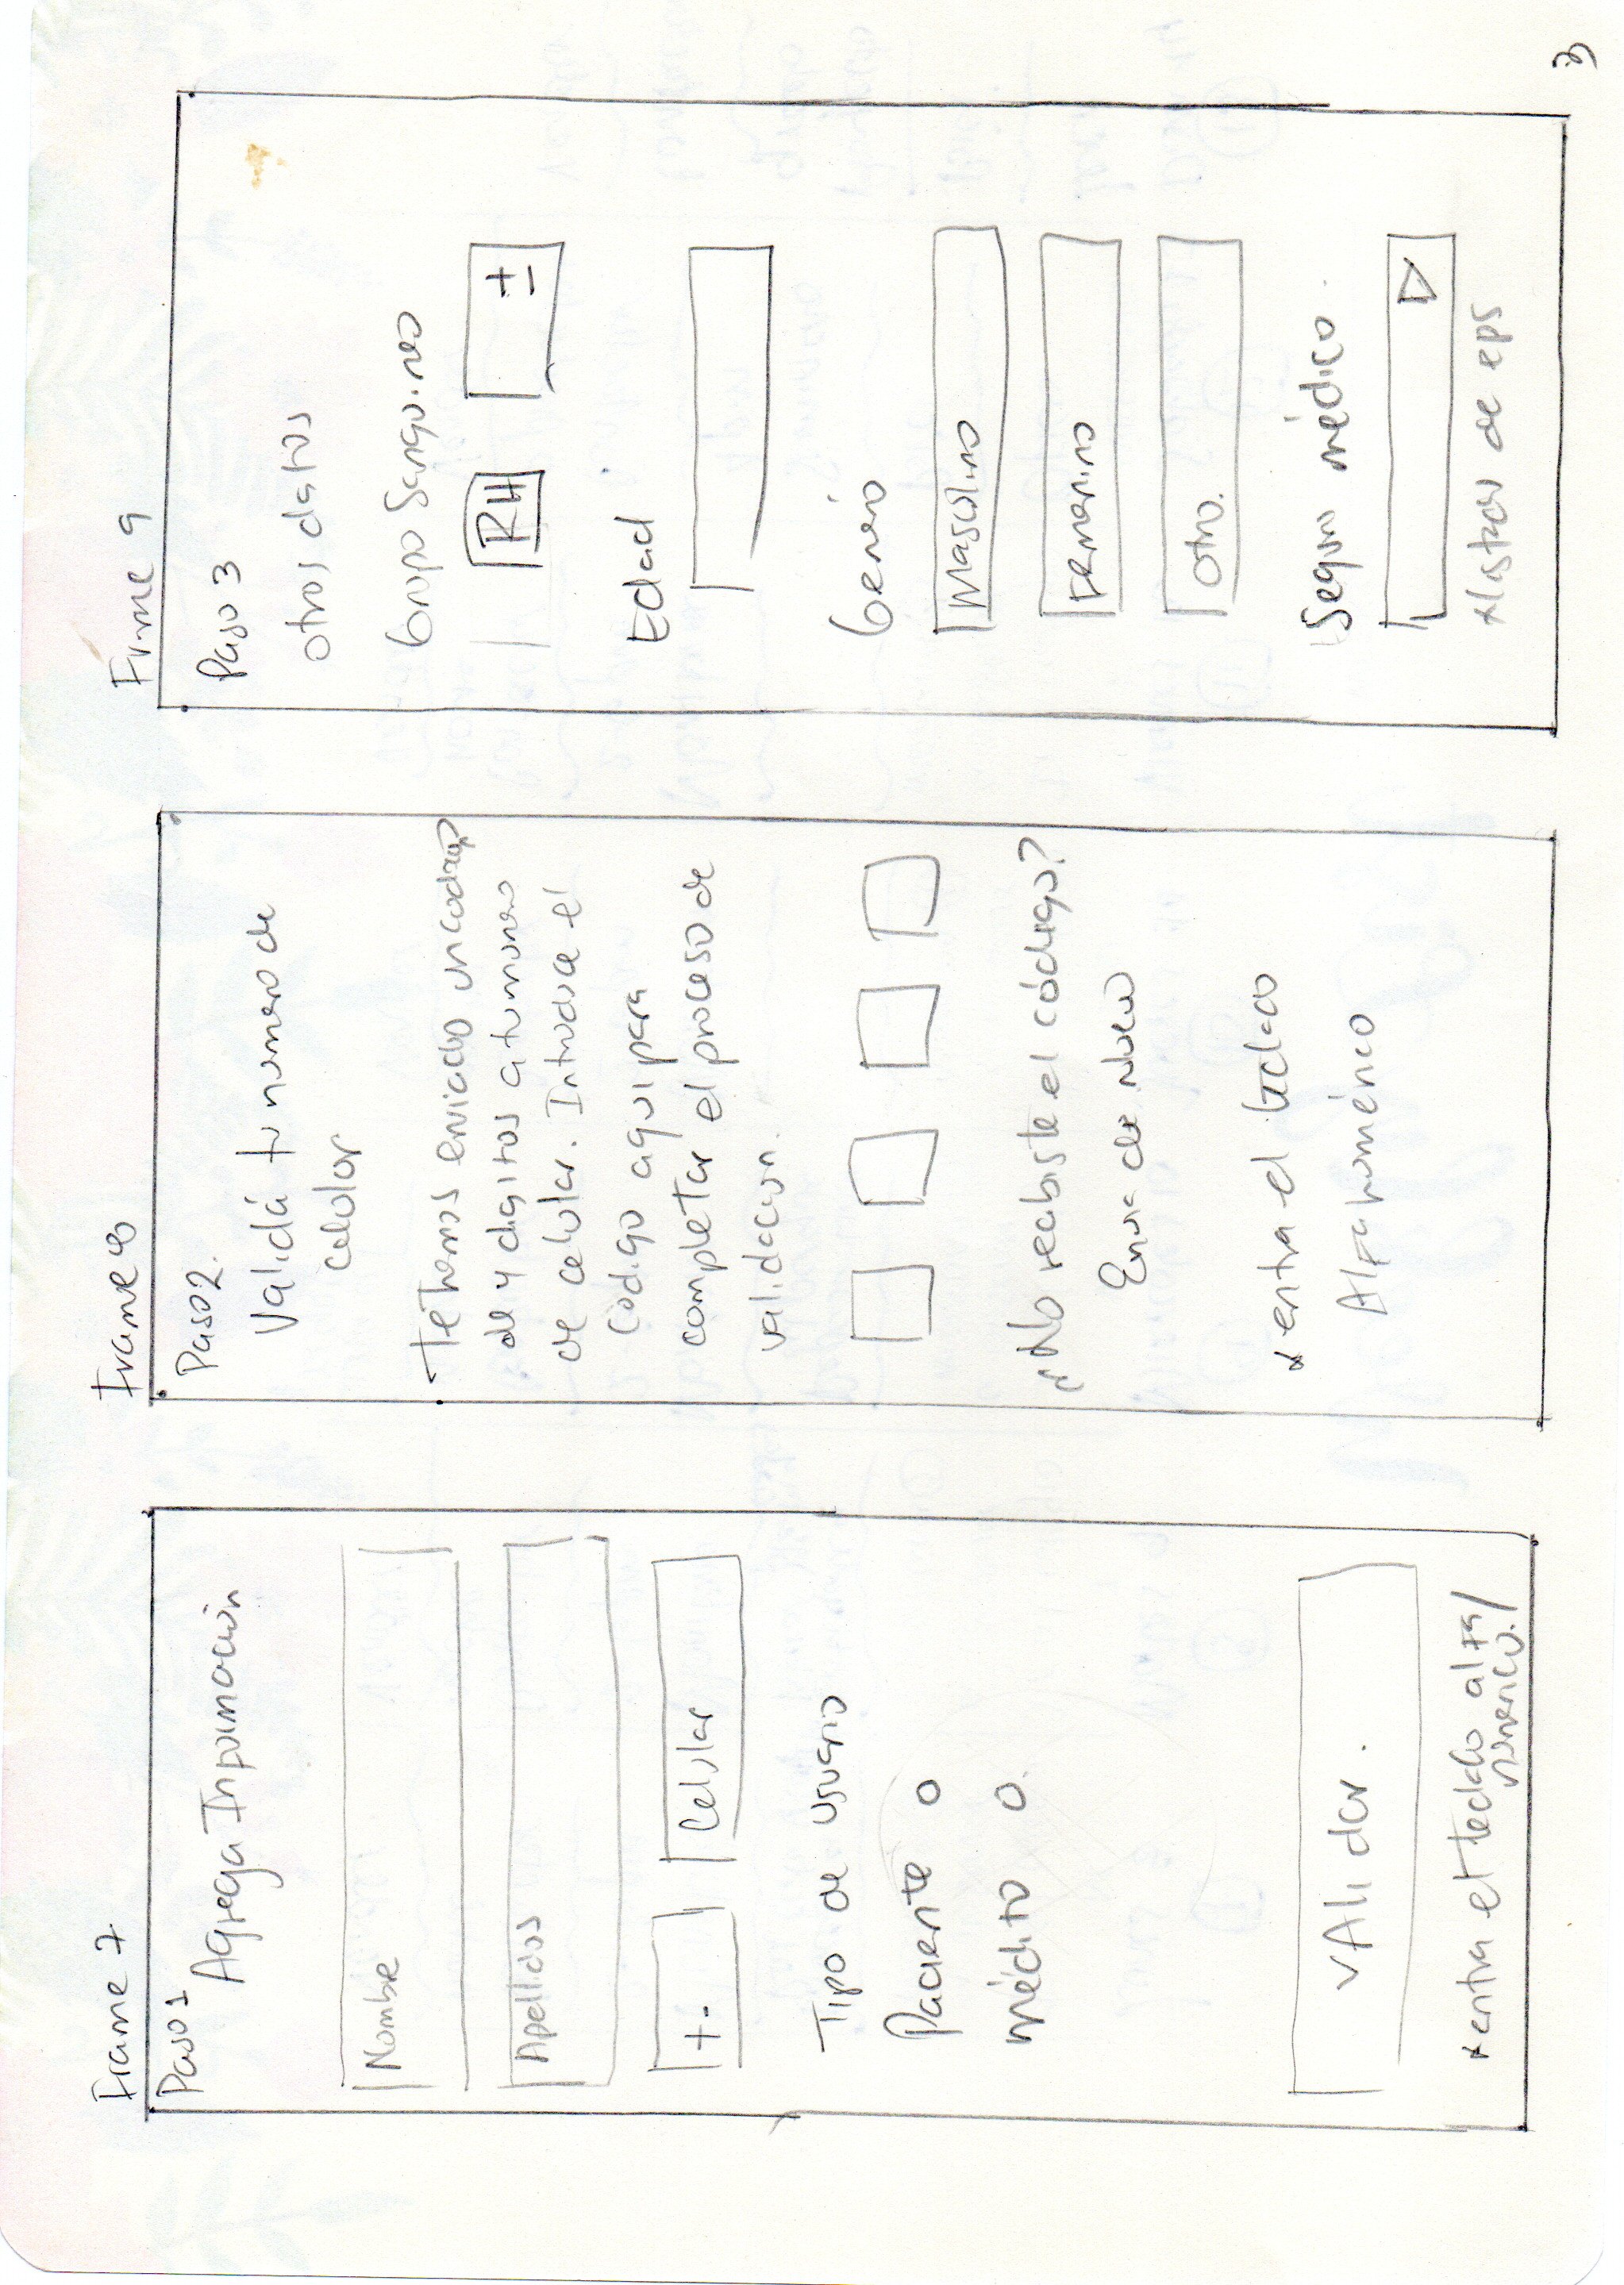 Frame 7
Paso 1
Agrega Información
Nombre
Apellidos
+-
Celular
Tipo de usuario
Paciente o
Médito o.
VAlidar.
*entra el teclado alfa/
númerico.
Frame 8
Paso 2.
Validá tu numero de
Celular
Te hemos enviado un codigo
de 4 digitos a tu numero
de celular. Introduce el
Codigo aqui para
completar el proceso de
validacion.
¿No recibiste el código?
Envia de nuevo
*entra el teclado
Alfanuménico
Frme 9
Paso 3
otros datos
Grupo Sanguineo
RH
+
-
Edad
Genero
Masculino
Femenino
Otro.
Seguro médico.
*listado de eps
3